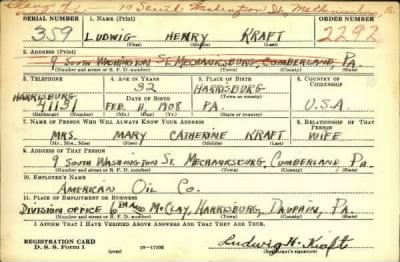 19 South Washington St., Mechanicsburg, Pa.
SERIAL NUMBER 1. NAME (Print) ORDER NUMBER
359 LUDWIG HENRY KRAFT 2292
(First) (Middle) (Last)
2. ADDRESS (Print)
9 SOUTH WASHINGTON ST. MECHANKSBURG, CUMBERLAND, PA.
(Number and street or R. F. D. number) (Town) (County) (State)
3. TELEPHONE 4. AGE IN YEARS 5. PLACE OF BIRTH 6. COUNTRY OF CITIZENSHIP
HARRISBURG 32 HARRISBURG
DATE OF BIRTH (Town or county)
41131 FEB 11 1908 PA. U.S.A
(Exchange) (Number) (Mo.) (Day) (Yr.) (State or country)
7. NAME OF PERSON WHO WILL ALWAYS KNOW YOUR ADDRESS 8. RELATIONSHIP OF THAT PERSON
MRS. MARY CATHERINE KRAFT WIFE
(Mr., Mrs., Miss) (First) (Middle) (Last)
9. ADDRESS OF THAT PERSON
9 SOUTH WASHINGTON ST. MECHANKSBURG, CUMBERLAND PA.
(Number and street or R. F. D. number) (Town) (County) (State)
10. EMPLOYER'S NAME
AMERICAN OIL CO.
11. PLACE OF EMPLOYMENT OR BUSINESS
DIVISION OFFICE 6TH AND MCCLAY, HARRISBURG, DAUPHIN, PA.
(Number and street or R. F. D. number) (Town) (County) (State)
I AFFIRM THAT I HAVE VERIFIED ABOVE ANSWERS AND THAT THEY ARE TRUE.
REGISTRATION CARD
D. S. S. Form 1 Ludwig H. Kraft
(Registrant's signature)